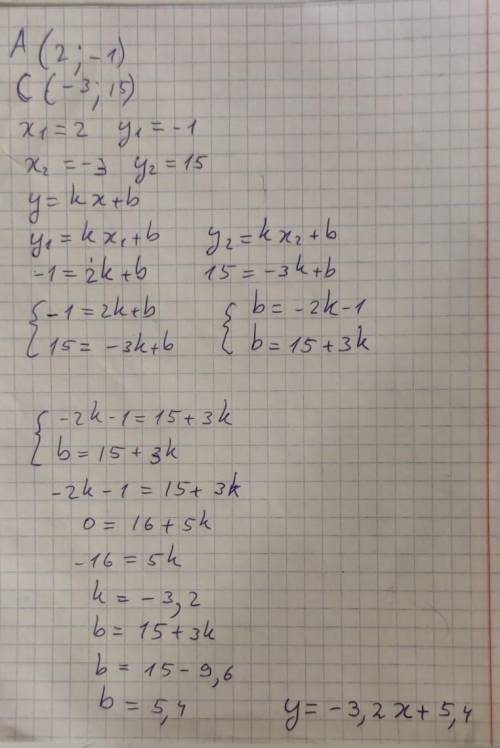 A (2; -1)
C (-3; 15)
x₁ = 2 y₁ = -1
x₂ = -3 y₂ = 15
y = kx + b
y₁ = kx₁ + b y₂ = kx₂ + b
-1 = 2k + b 15 = -3k + b
{ -1 = 2k + b { b = -2k - 1
{ 15 = -3k + b { b = 15 + 3k
{ -2k - 1 = 15 + 3k
{ b = 15 + 3k
-2k - 1 = 15 + 3k
0 = 16 + 5k
-16 = 5k
k = -3,2
b = 15 + 3k
b = 15 - 9,6
b = 5,4 y = -3,2x + 5,4